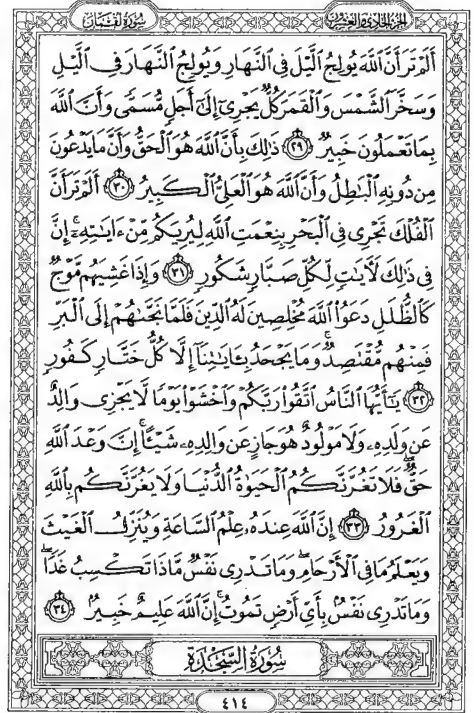 الجزء الحادي والعشرون
سورة لقمان
أَلَمْ تَرَ أَنَّ ٱللَّهَ يُولِجُ ٱلَّيْلَ فِي ٱلنَّهَارِ وَيُولِجُ ٱلنَّهَارَ فِي ٱلَّيْلِ
وَسَخَّرَ ٱلشَّمْسَ وَٱلْقَمَرَ كُلٌّ يَجْرِىٓ إِلَىٰٓ أَجَلٍ مُّسَمًّى وَأَنَّ ٱللَّهَ
بِمَا تَعْمَلُونَ خَبِيرٌ ٢٩ ذَٰلِكَ بِأَنَّ ٱللَّهَ هُوَ ٱلْحَقُّ وَأَنَّ مَا يَدْعُونَ
مِن دُونِهِ ٱلْبَٰطِلُ وَأَنَّ ٱللَّهَ هُوَ ٱلْعَلِىُّ ٱلْكَبِيرُ ٣٠ أَلَمْ تَرَ أَنَّ
ٱلْفُلْكَ تَجْرِى فِي ٱلْبَحْرِ بِنِعْمَتِ ٱللَّهِ لِيُرِيَكُم مِّنْ ءَايَٰتِهِۦٓ ۚ إِنَّ
فِي ذَٰلِكَ لَءَايَٰتٍ لِّكُلِّ صَبَّارٍ شَكُورٍ ٣١ وَإِذَا غَشِيَهُم مَّوْجٌ
كَٱلظُّلَلِ دَعَوُا۟ ٱللَّهَ مُخْلِصِينَ لَهُ ٱلدِّينَ فَلَمَّا نَجَّىٰهُمْ إِلَى ٱلْبَرِّ
فَمِنْهُم مُّقْتَصِدٌ ۚ وَمَا يَجْحَدُ بِـَٔايَٰتِنَآ إِلَّا كُلُّ خَتَّارٍ كَفُورٍ
٣٢ يَٰٓأَيُّهَا ٱلنَّاسُ ٱتَّقُوا۟ رَبَّكُمْ وَٱخْشَوْا۟ يَوْمًا لَّا يَجْزِى وَالِدٌ
عَن وَلَدِهِۦ وَلَا مَوْلُودٌ هُوَ جَازٍ عَن وَالِدِهِۦ شَيْـًٔا ۚ إِنَّ وَعْدَ ٱللَّهِ
حَقٌّ ۖ فَلَا تَغُرَّنَّكُمُ ٱلْحَيَوٰةُ ٱلدُّنْيَا وَلَا يَغُرَّنَّكُم بِٱللَّهِ
ٱلْغَرُورُ ٣٣ إِنَّ ٱللَّهَ عِندَهُۥ عِلْمُ ٱلسَّاعَةِ وَيُنَزِّلُ ٱلْغَيْثَ
وَيَعْلَمُ مَا فِي ٱلْأَرْحَامِ ۖ وَمَا تَدْرِى نَفْسٌ مَّاذَا تَكْسِبُ غَدًا ۖ
وَمَا تَدْرِى نَفْسٌۢ بِأَىِّ أَرْضٍ تَمُوتُ ۚ إِنَّ ٱللَّهَ عَلِيمٌ خَبِيرٌۢ ٣٤
سُورَةُ السَّجْدَةِ
٤١٤